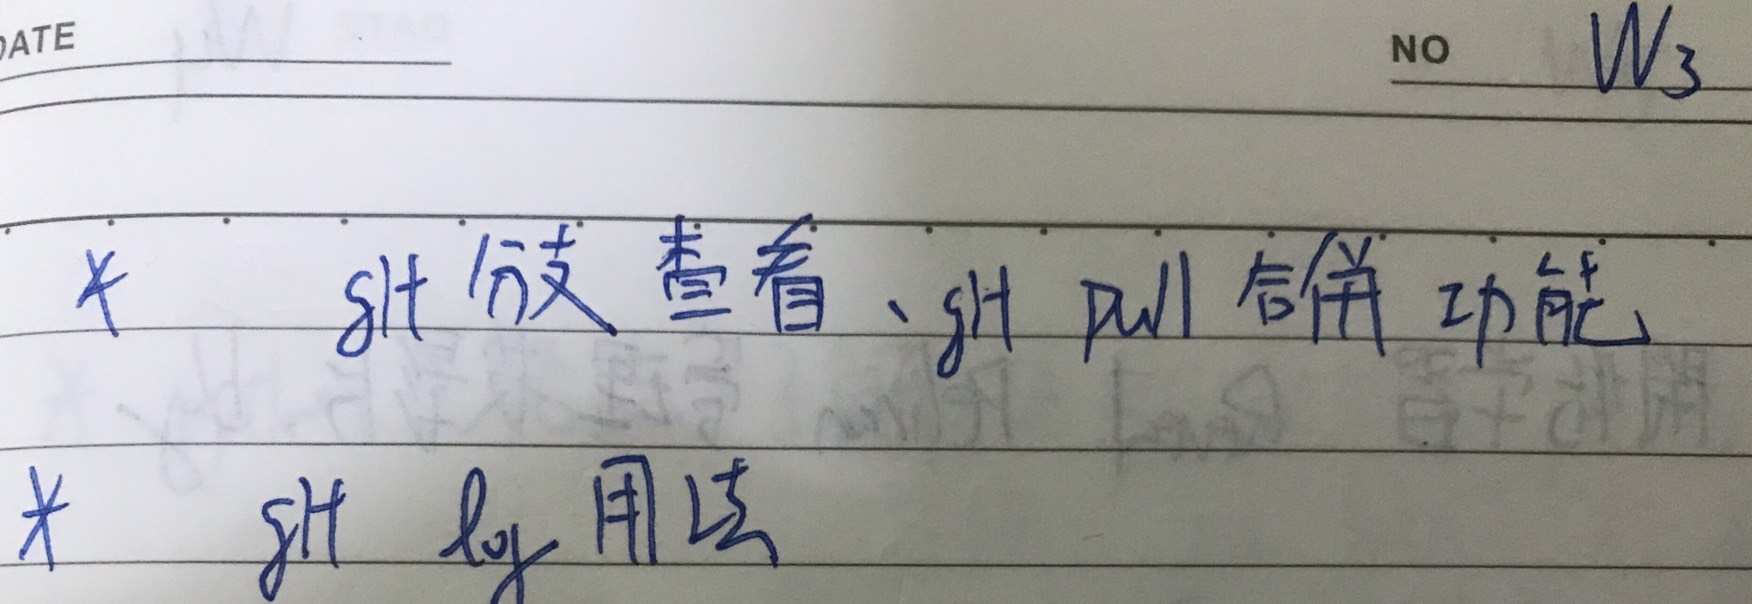 DATE
NO W3
* git 分支查看、git pull 合併功能
* git log 用法